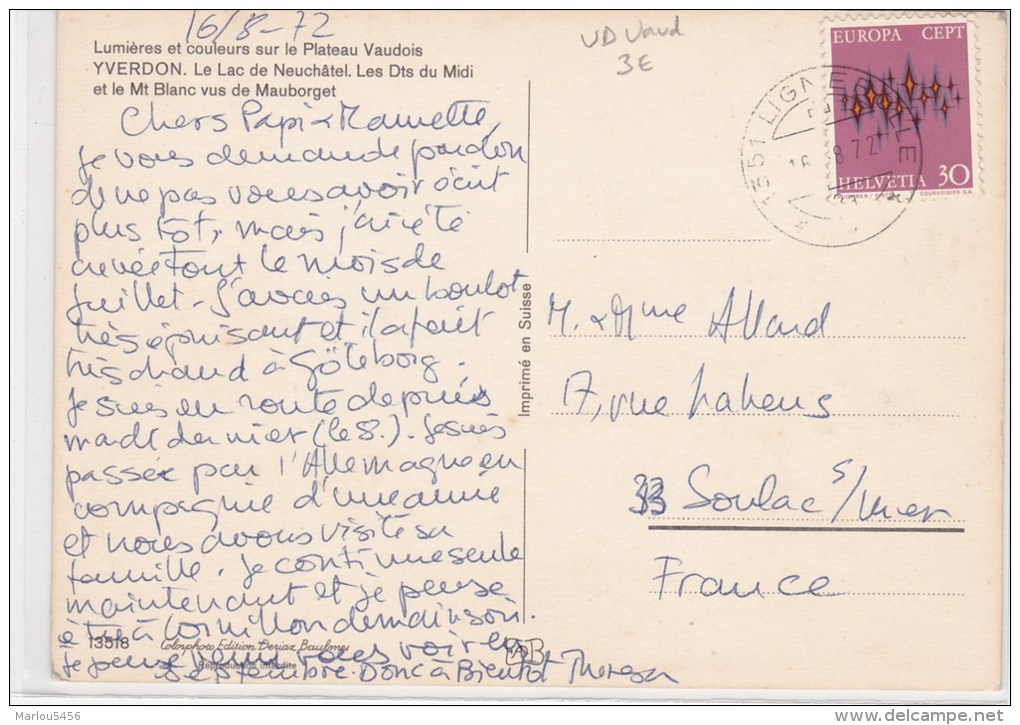 16/8-72
Lumières et couleurs sur le Plateau Vaudois
YVERDON. Le Lac de Neuchâtel. Les Dts du Midi
et le Mt Blanc vus de Mauborget
VD Vaud
3E
EUROPA CEPT
HELVETIA 30
COURVOISIER S.A.
1351 LIGNEROLLE
16 -8 72
Chers Papi & Mamette,
je vous demande pardon
de ne pas vous avoir écrit
plus tôt, mais j'ai été
crevée tout le mois de
juillet. J'avais un boulot
très épuisant et il a fait
très chaud à Göteborg.
Je suis en route depuis
mardi dernier (le 8.). Je suis
passée par l'Allemagne en
compagnie d'une amie
et nous avons visité sa
famille. Je continue seule
maintenant et je pense
être à Cornillon demain soir.
je pense venir vous voir en
septembre. Donc à Bientôt Theresa
Imprimé en Suisse
M. & Mme Allard
17, rue Lahens
33 Soulac s/mer
France
13518
Colorphoto Edition Deriaz Baulmes
Reproduction interdite
Marlou5456